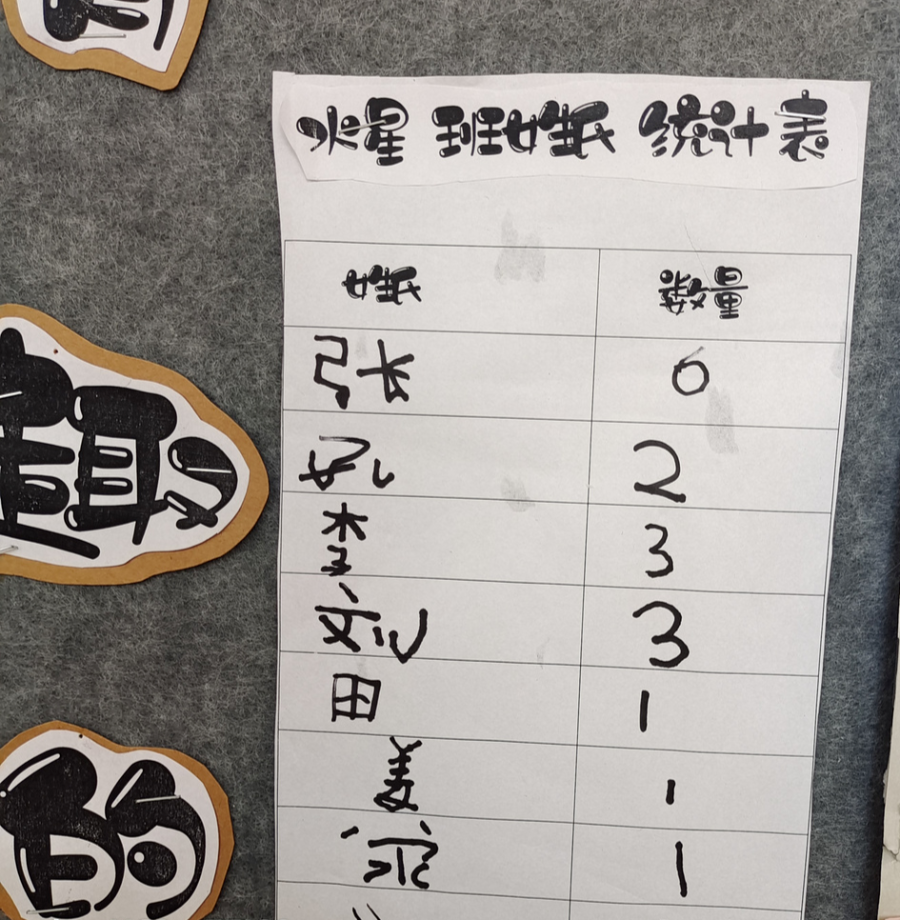 火星 班姓氏 统计表
姓氏 数量
张 0
孔 2
李 3
刘 3
田 1
姜 1
1
趣
的